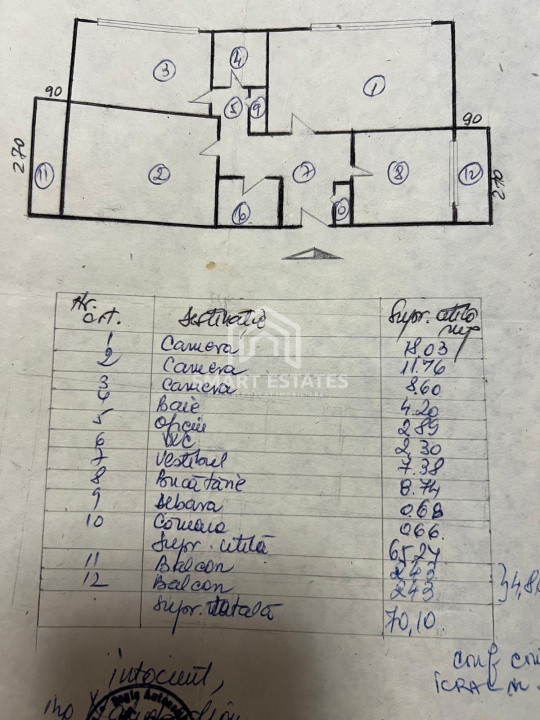 4
3
1
5
9
90
90
270
11
2
7
8
12
270
6
10
Nr. crt.
Destinația
Supr. utilă mp
1 Camera 18.03
2 Camera 11.76
3 Camera 8.60
4 Baie 4.20
5 Oficiu 2.89
6 WC 2.30
7 Vestibul 7.38
8 Bucătărie 8.74
9 Debara 0.68
10 Camara 0.66
Supr. utilă 65.24
11 Balcon 2.43
12 Balcon 2.43
} 4,8
Supr. totală 70,10
SMART ESTATES
intocmit,
conf